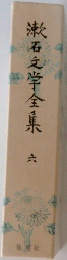 漱石文学全集
六
集英社